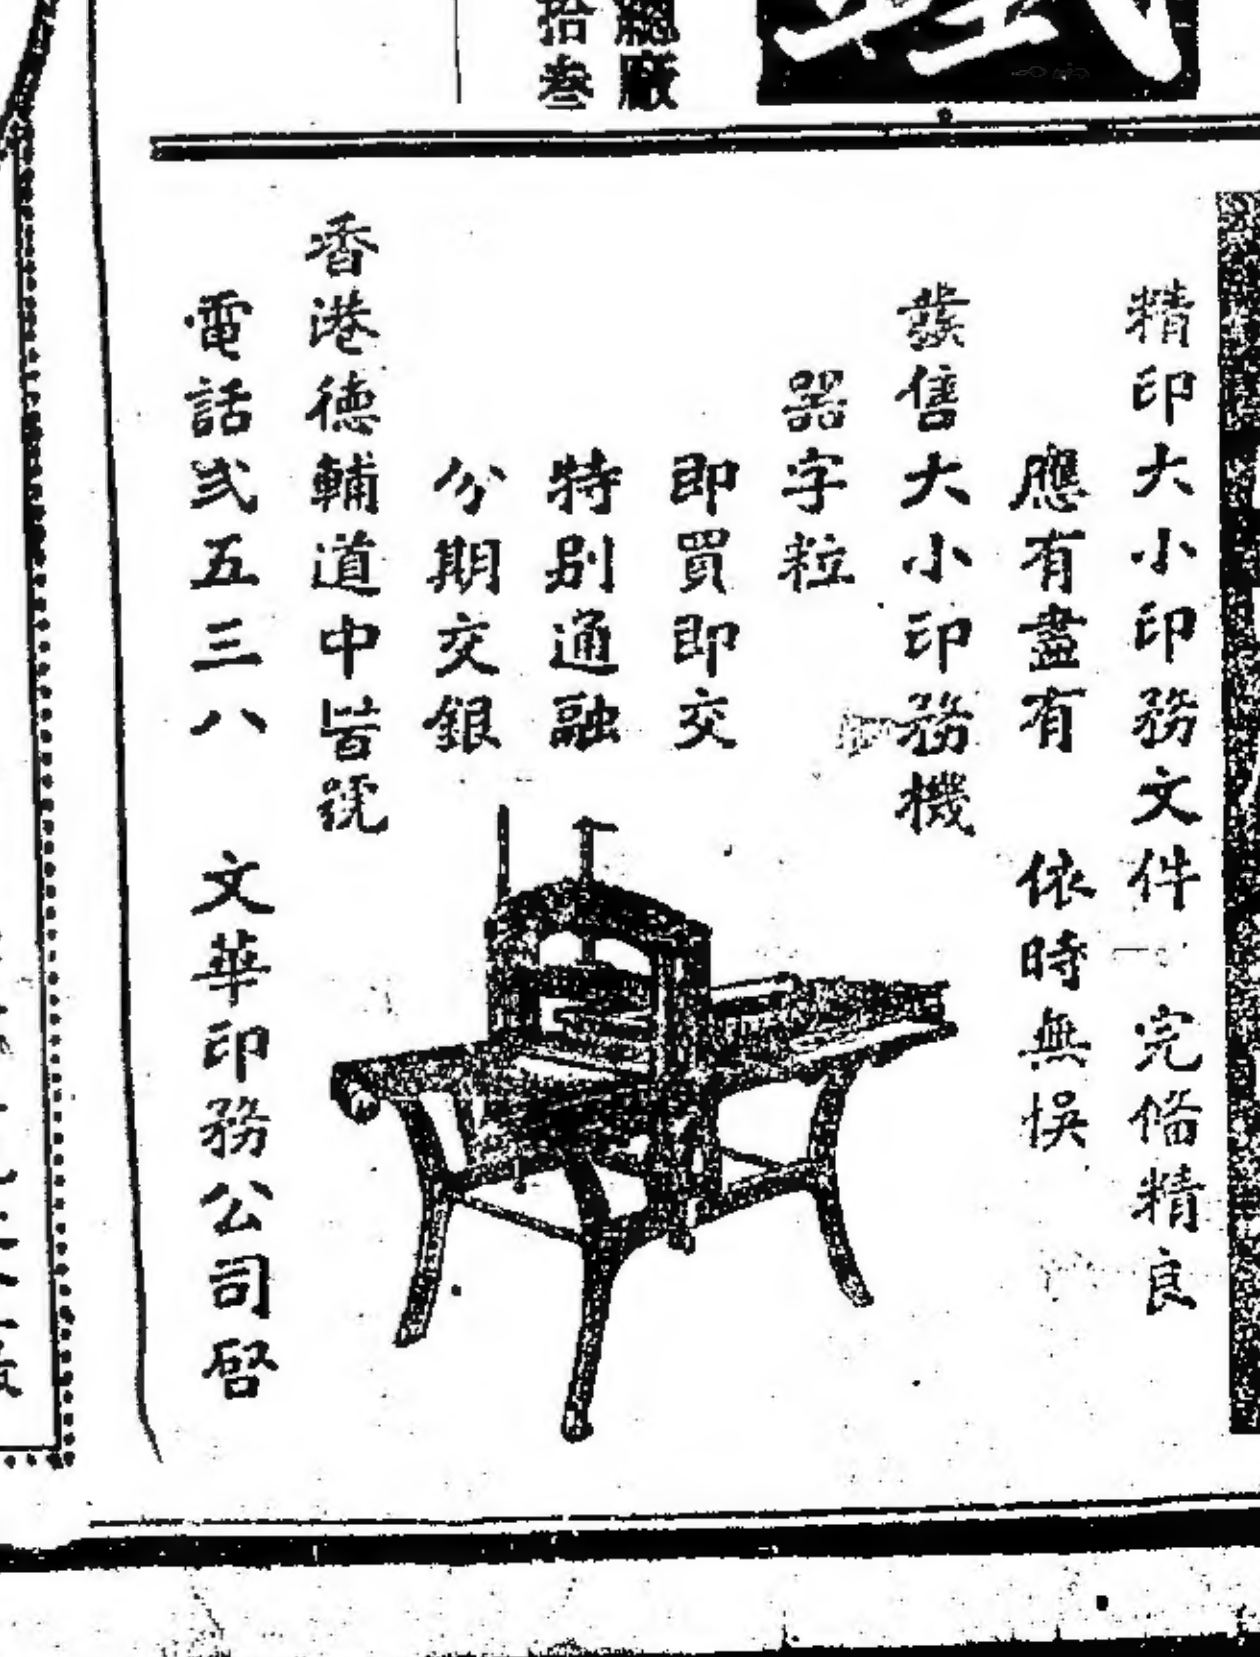 總廠
拾叁
精印大小印務文件 完俻精良
應有盡有 依時無悞
發售大小印務機
器字粒
即買即交
特別通融
分期交銀
香港德輔道中皆號
電話弍五三八 文華印務公司啓